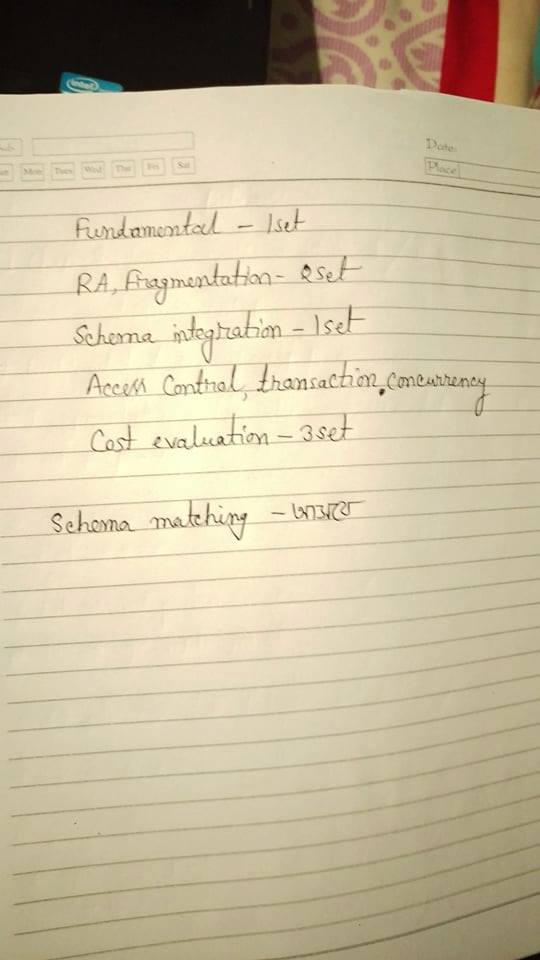 intel
Date:
Mon Tues Wed Thu Fri Sat
Place
Fundamental - 1set
RA, Fragmentation - 2set
Schema integration - 1set
Access Control, transaction, concurrency
Cost evaluation - 3set
Schema matching -